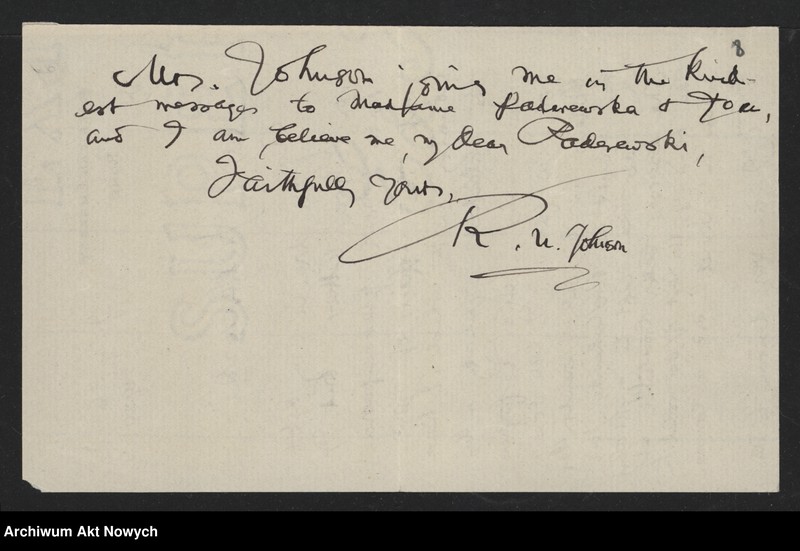 8
Mrs. Johnson joins me in the kind-
est messages to Madame Paderewska & you,
and I am, believe me, my dear Paderewski,
Faithfully yours,
R. U. Johnson
Archiwum Akt Nowych